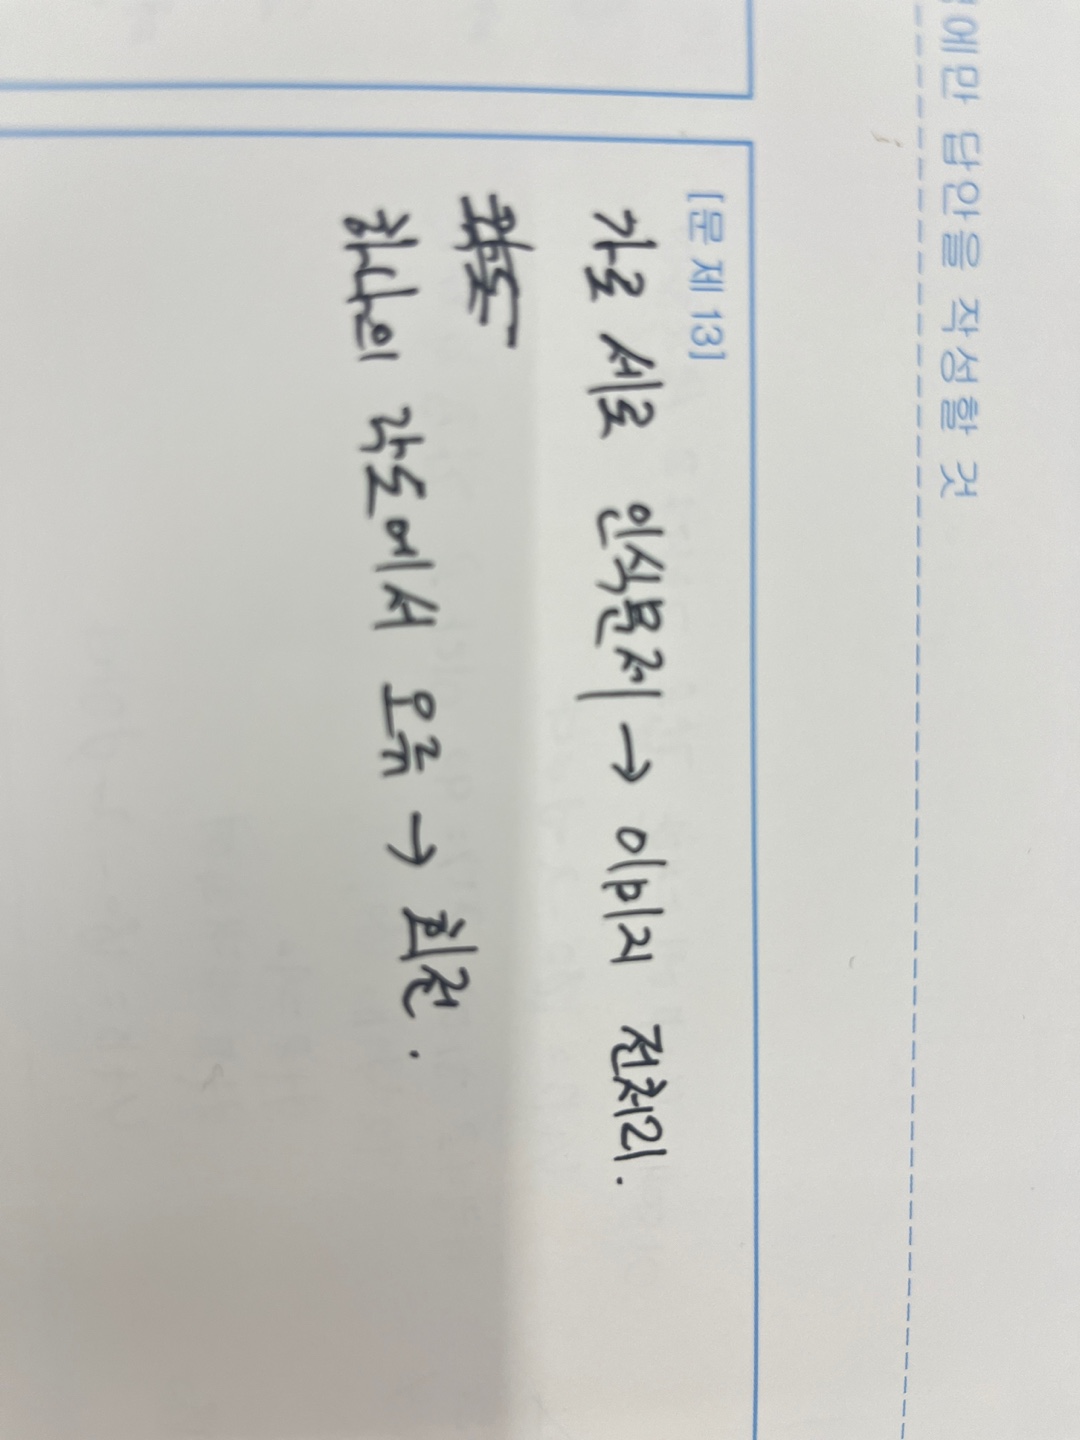 에만 답안을 작성할 것
[문제 13]
가로 세로 인식문제 → 이미지 전처리.
하나의 각도에서 오류 → 회전.